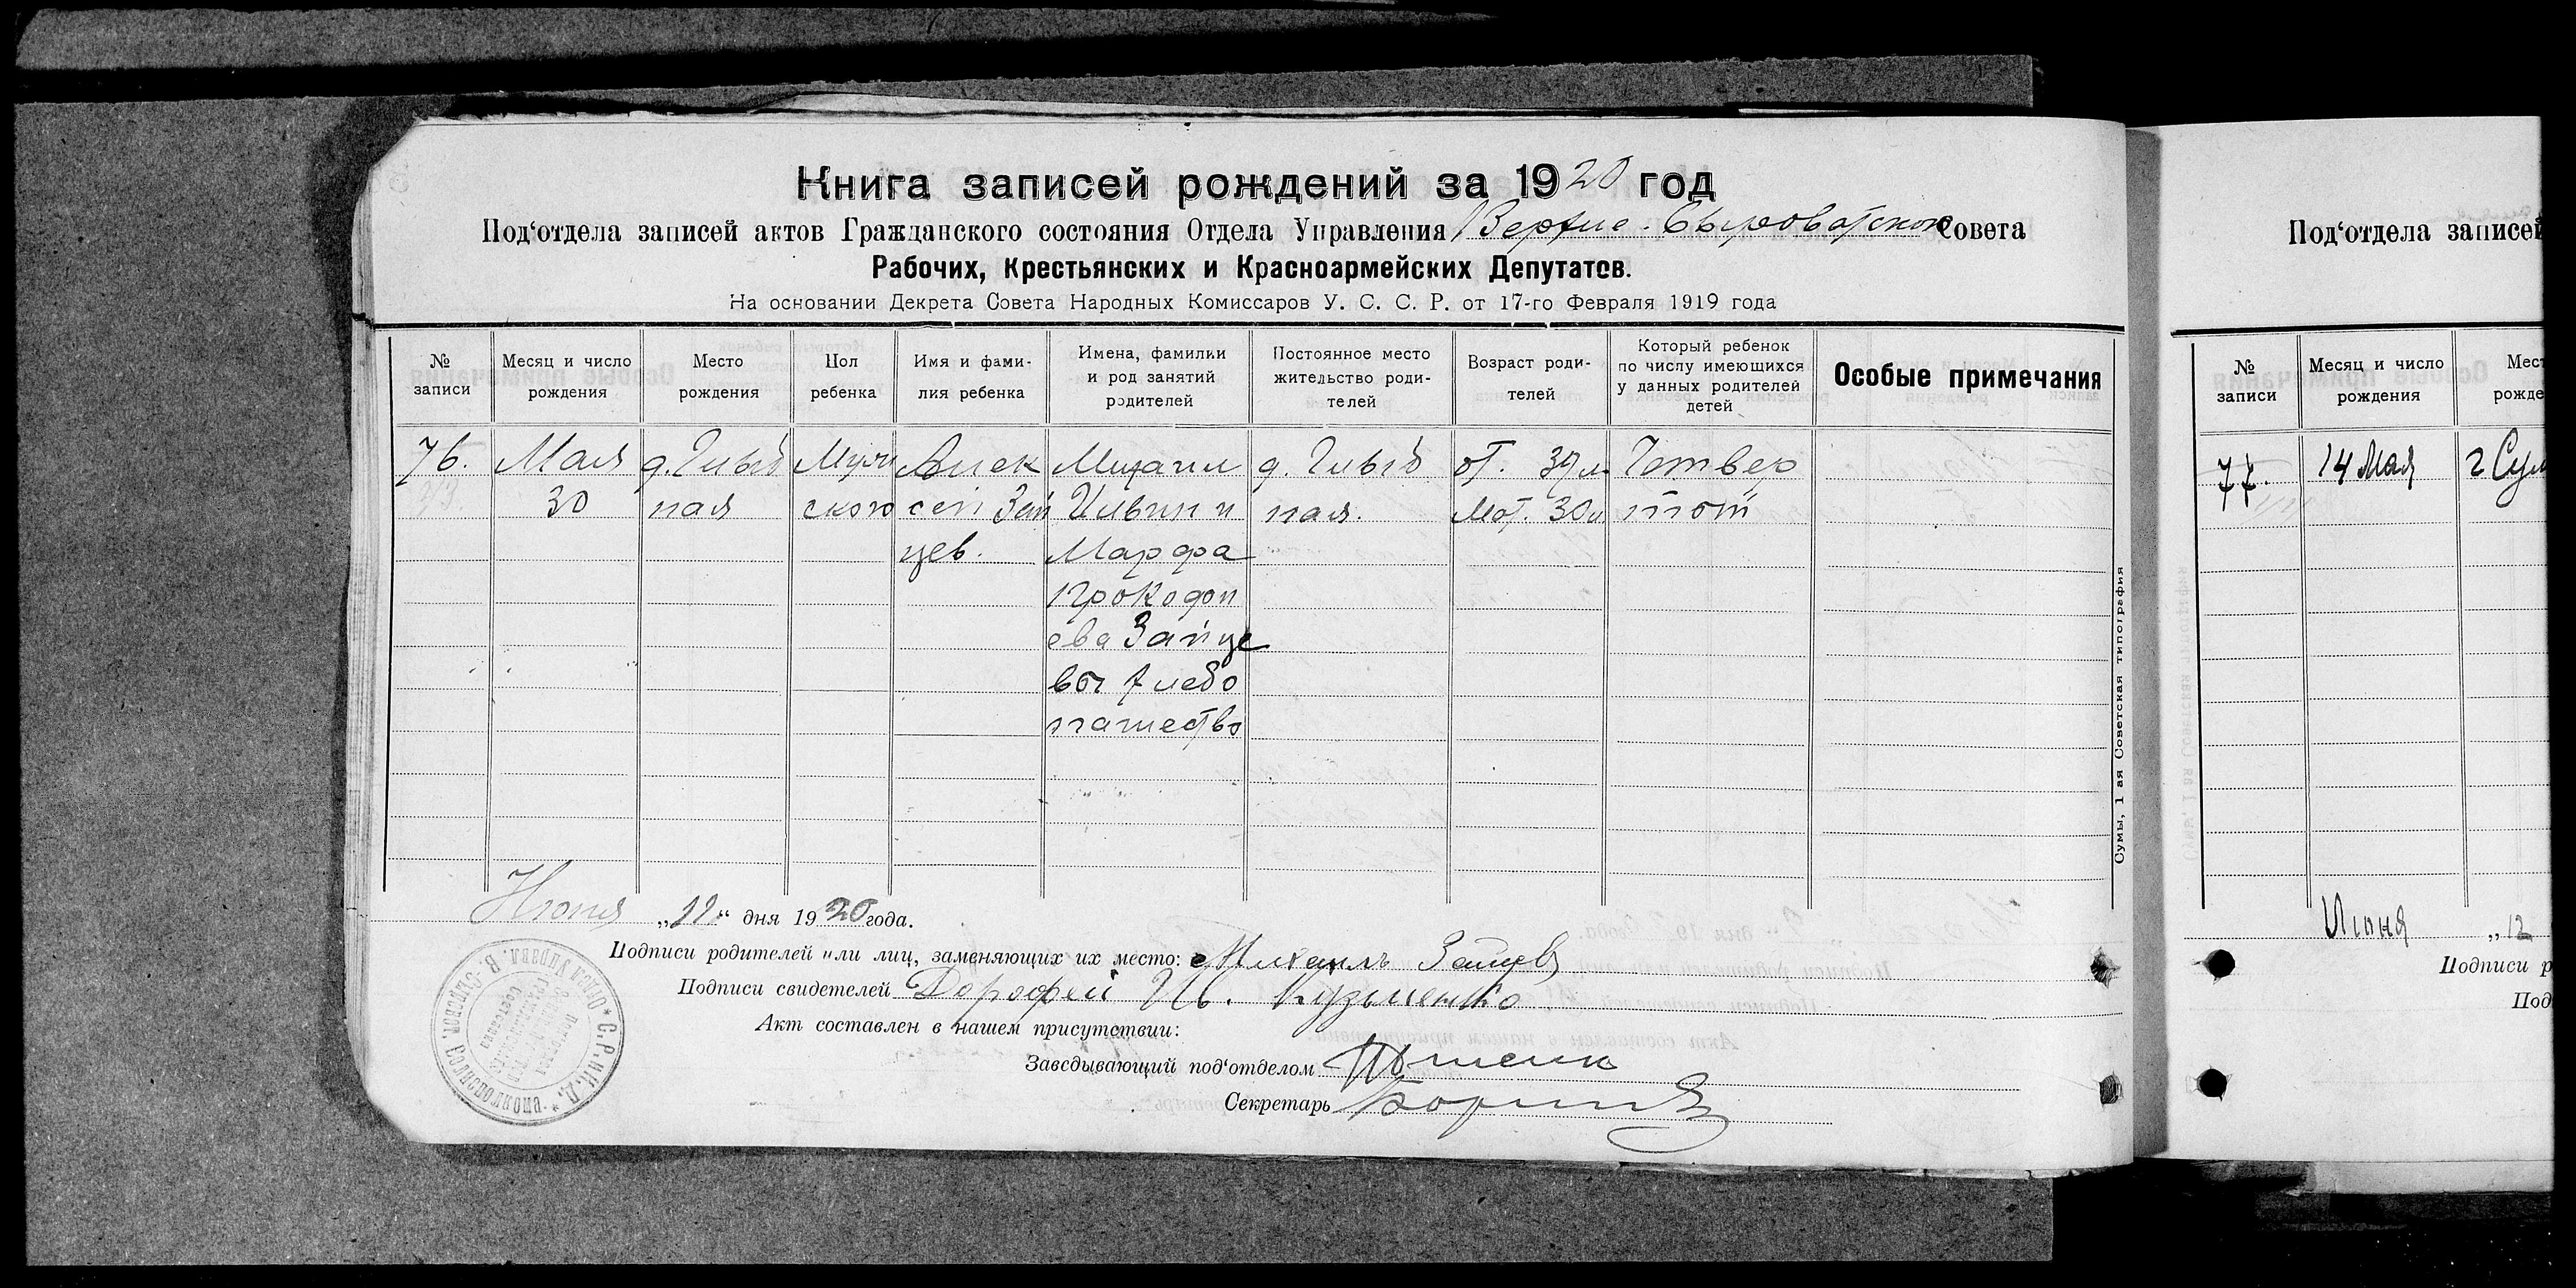 Книга записей рождений за 1920 год
Под‘отдела записей актов Гражданского состояния Отдела Управления Верхне-Сыроватской Совета
Рабочих, Крестьянских и Красноармейских Депутатов.
На основании Декрета Совета Народных Комиссаров У. С. С. Р. от 17-го Февраля 1919 года
№ записи
Месяц и число рождения
Место рождения
Пол ребенка
Имя и фами-
лия ребенка
Имена, фамилии
и род занятий
родителей
Постоянное место
жительство роди-
телей
Возраст роди-
телей
Который ребенок
по числу имеющихся
у данных родителей
детей
Особые примечания
76.
Мая
30
д.
ная
Муж
ского
Алек
сей Зай
цев.
Михаил
Ильин и
Марфа
Прокофи
ева Зайце
вы хлебо
пашество
д.
ная.
от. 39 л
мат. 30 л
Четвер
тый
Июня „11“ дня 1920 года.
Подписи родителей или лиц, заменяющих их место: Михаилъ Зайцев
Подписи свидетелей Дорофей Ив. Кузьменко
Акт составлен в нашем присутствии:
Заведывающий под‘отделом
Секретарь
Сумы, 1 ая Советская типография
Под‘отдела записей
№ записи
Месяц и число рождения
Мест
рожде
77.
14 Мая
г Сум
Июня „12
Подписи р
Под